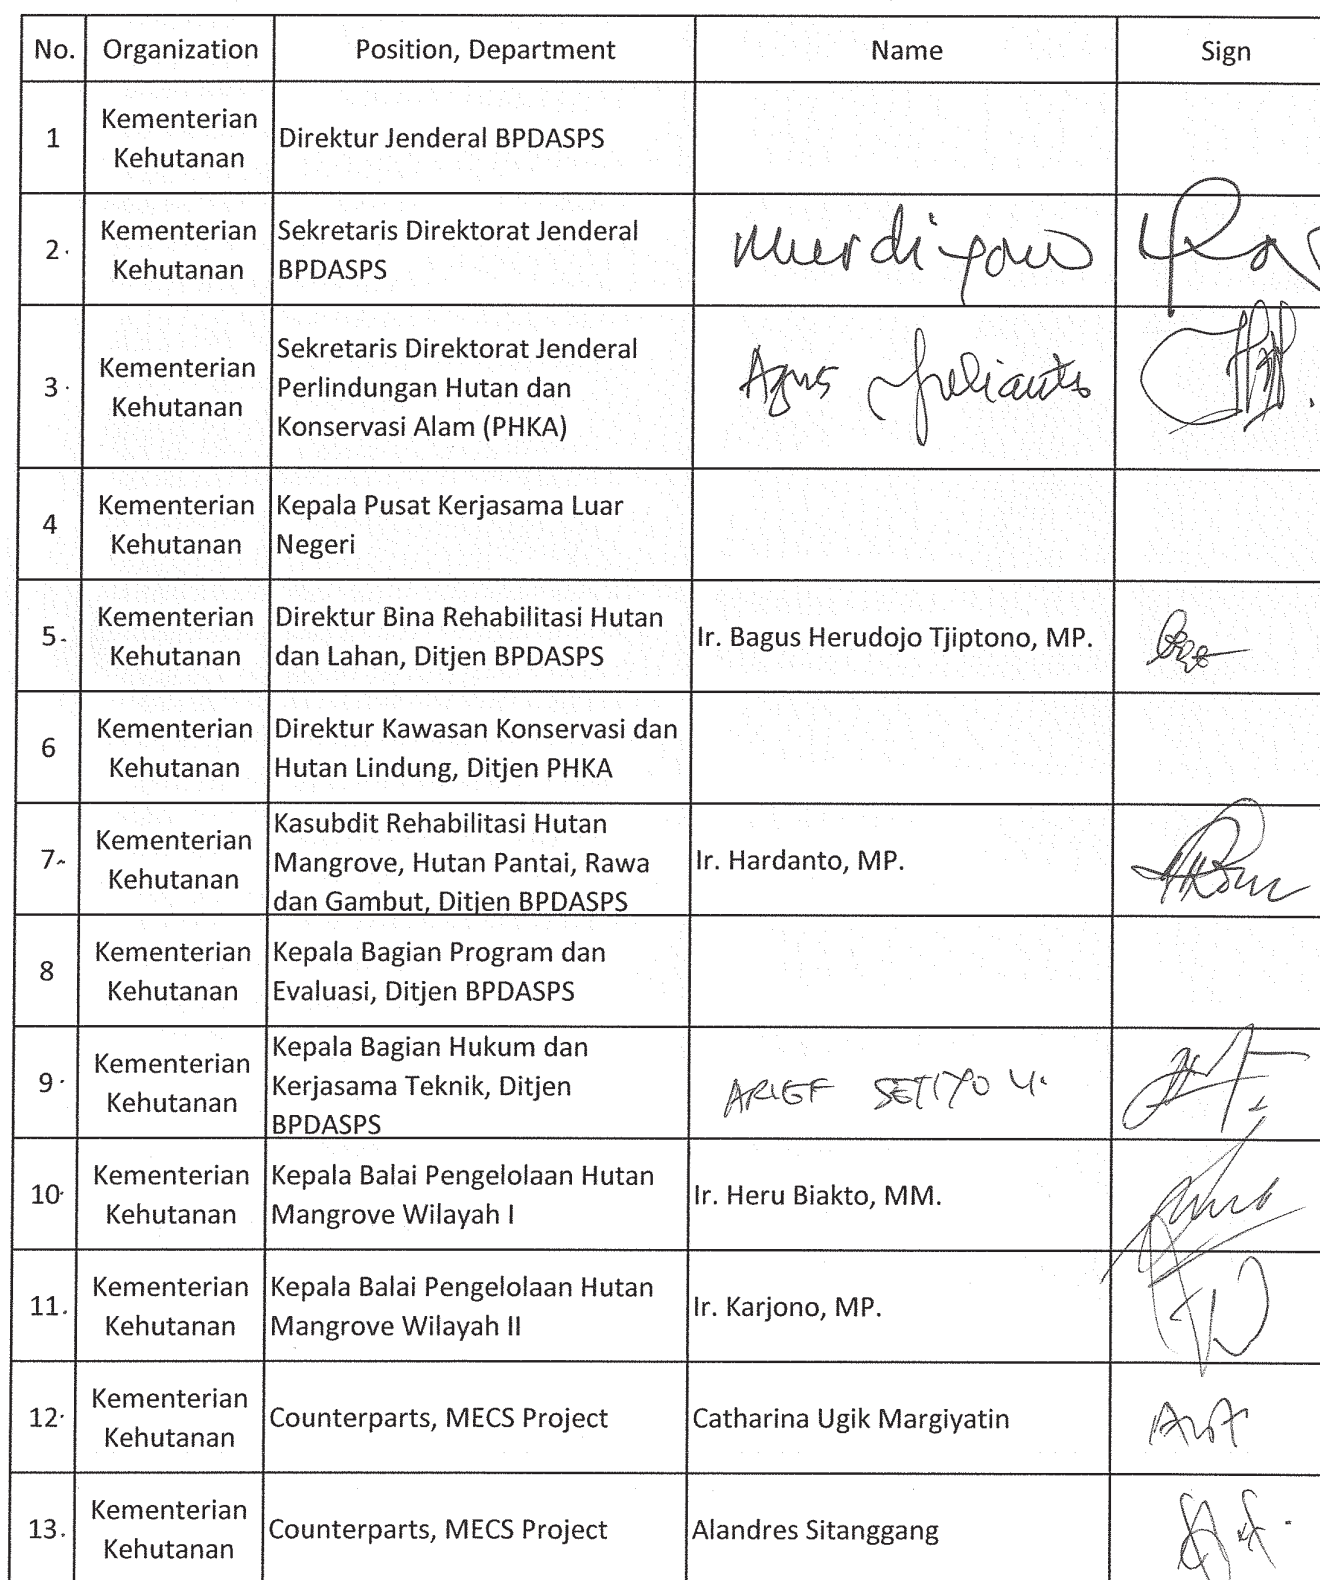 No. Organization Position, Department Name Sign
1 Kementerian Kehutanan Direktur Jenderal BPDASPS
2. Kementerian Kehutanan Sekretaris Direktorat Jenderal BPDASPS
3. Kementerian Kehutanan Sekretaris Direktorat Jenderal Perlindungan Hutan dan Konservasi Alam (PHKA) Agus
4 Kementerian Kehutanan Kepala Pusat Kerjasama Luar Negeri
5. Kementerian Kehutanan Direktur Bina Rehabilitasi Hutan dan Lahan, Ditjen BPDASPS Ir. Bagus Herudojo Tjiptono, MP.
6 Kementerian Kehutanan Direktur Kawasan Konservasi dan Hutan Lindung, Ditjen PHKA
7. Kementerian Kehutanan Kasubdit Rehabilitasi Hutan Mangrove, Hutan Pantai, Rawa dan Gambut, Ditjen BPDASPS Ir. Hardanto, MP.
8 Kementerian Kehutanan Kepala Bagian Program dan Evaluasi, Ditjen BPDASPS
9. Kementerian Kehutanan Kepala Bagian Hukum dan Kerjasama Teknik, Ditjen BPDASPS ARIEF SETIYO
10. Kementerian Kehutanan Kepala Balai Pengelolaan Hutan Mangrove Wilayah I Ir. Heru Biakto, MM.
11. Kementerian Kehutanan Kepala Balai Pengelolaan Hutan Mangrove Wilayah II Ir. Karjono, MP.
12. Kementerian Kehutanan Counterparts, MECS Project Catharina Ugik Margiyatin
13. Kementerian Kehutanan Counterparts, MECS Project Alandres Sitanggang